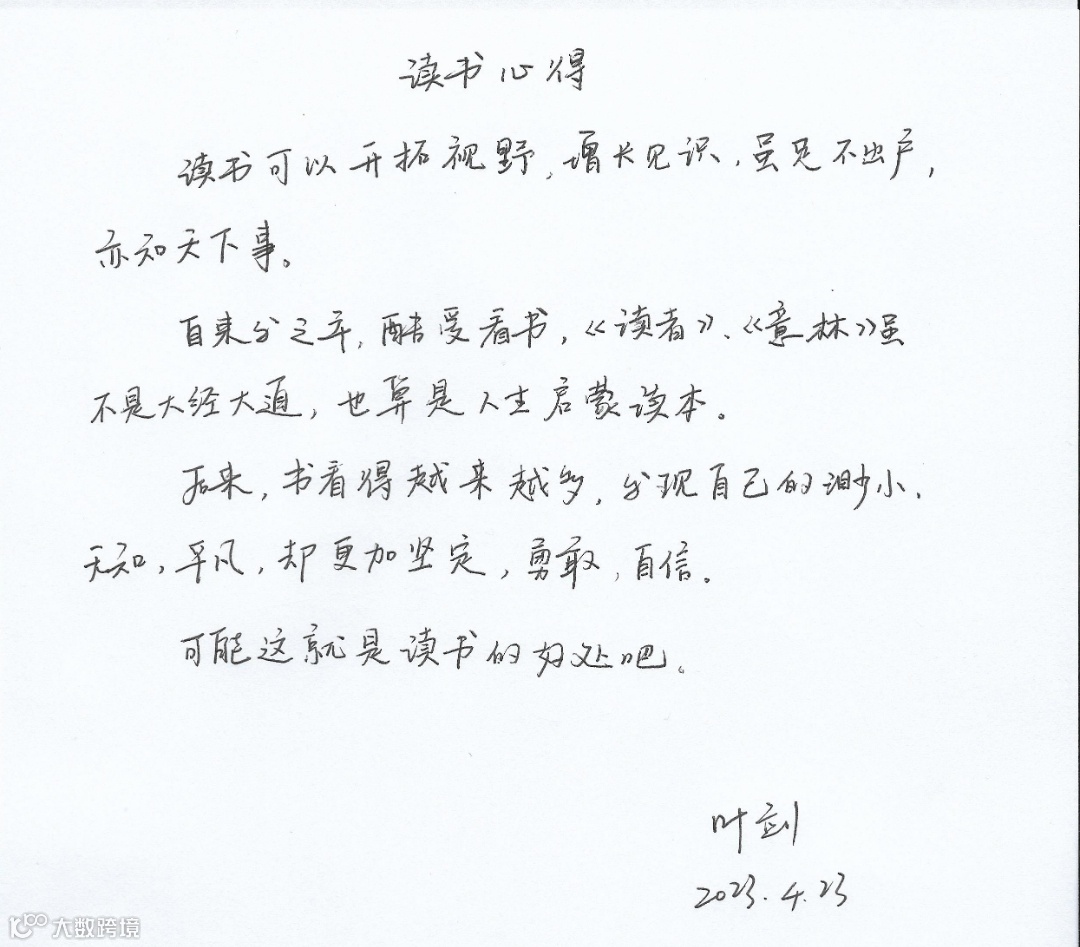 读书心得
读书可以开拓视野,增长见识,虽足不出户,
亦知天下事。
自束发之年,酷爱看书,《读者》、《意林》虽
不是大经大道,也算是人生启蒙读本。
后来,书看得越来越多,发现自己的渺小、
无知,平凡,却更加坚定,勇敢,自信。
可能这就是读书的好处吧。
叶剑
2023.4.23
大数跨境